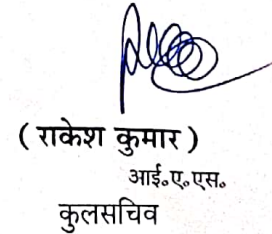 ( राकेश कुमार )
आई०ए०एस०
कुलसचिव